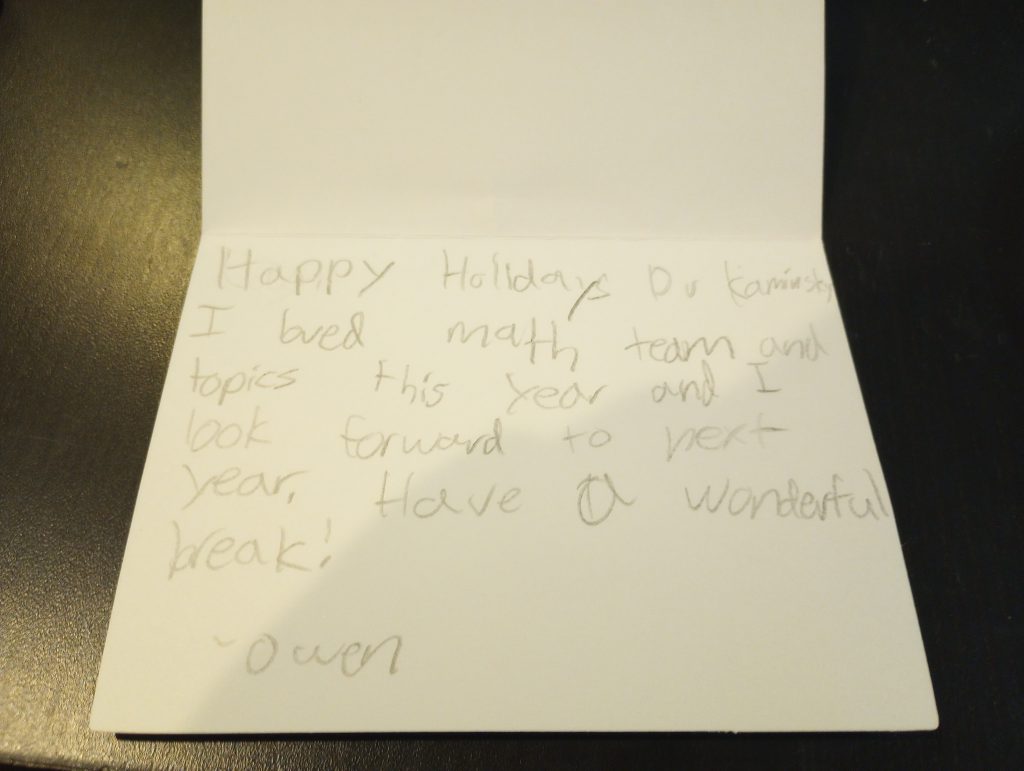 Happy Holidays Dr Kaminsky
I loved math team and
topics this year and I
look forward to next
year. Have a wonderful
break!
~Owen